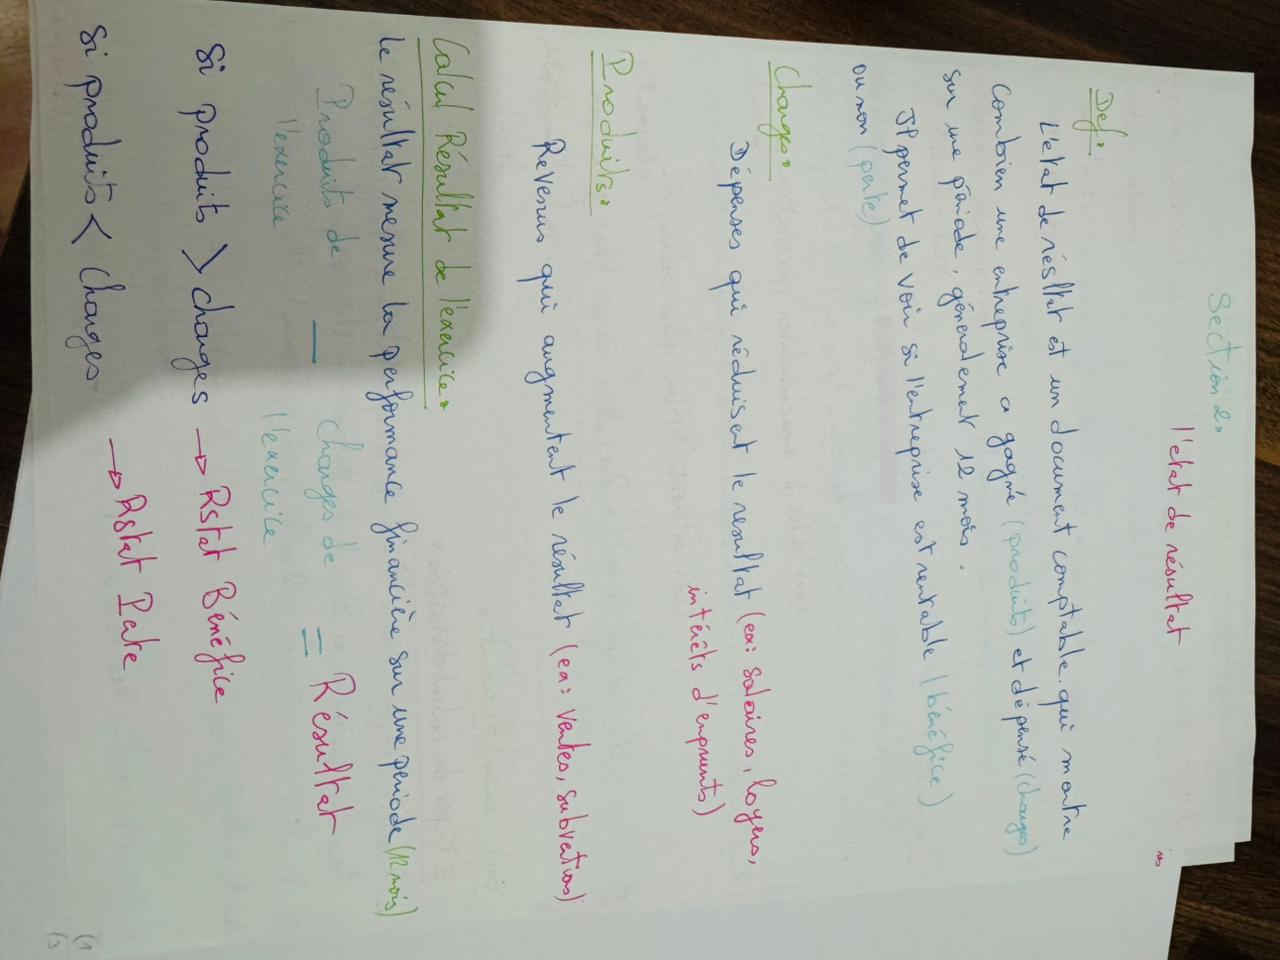 Section 2.
l'etat de résultat
Def.
L'etat de résltat est un document comptable. qui montre
combien une entreprise a gagné (produits) et dépensé (charges)
sur une période, géneralement 12 mois.
Il permet de voir si l'entreprise est rentable (bénéfice)
ou non (perte)
Charges.
Dépenses qui réduisent le resultat (ex: salaires, loyers,
intérêts d'emprunts)
Produits:
Revenus qui augmentent le résultat (ex: ventes, subvetions)
Calcul Résultat de l'exercice.
Le résultat mesure la performance financière sur une periode (12 mois)
Produits de — charges de = Résultat
l'exercice l'exercice
Si produits > charges → Rstat Bénéfice
si produits < charges → Rstat Perte